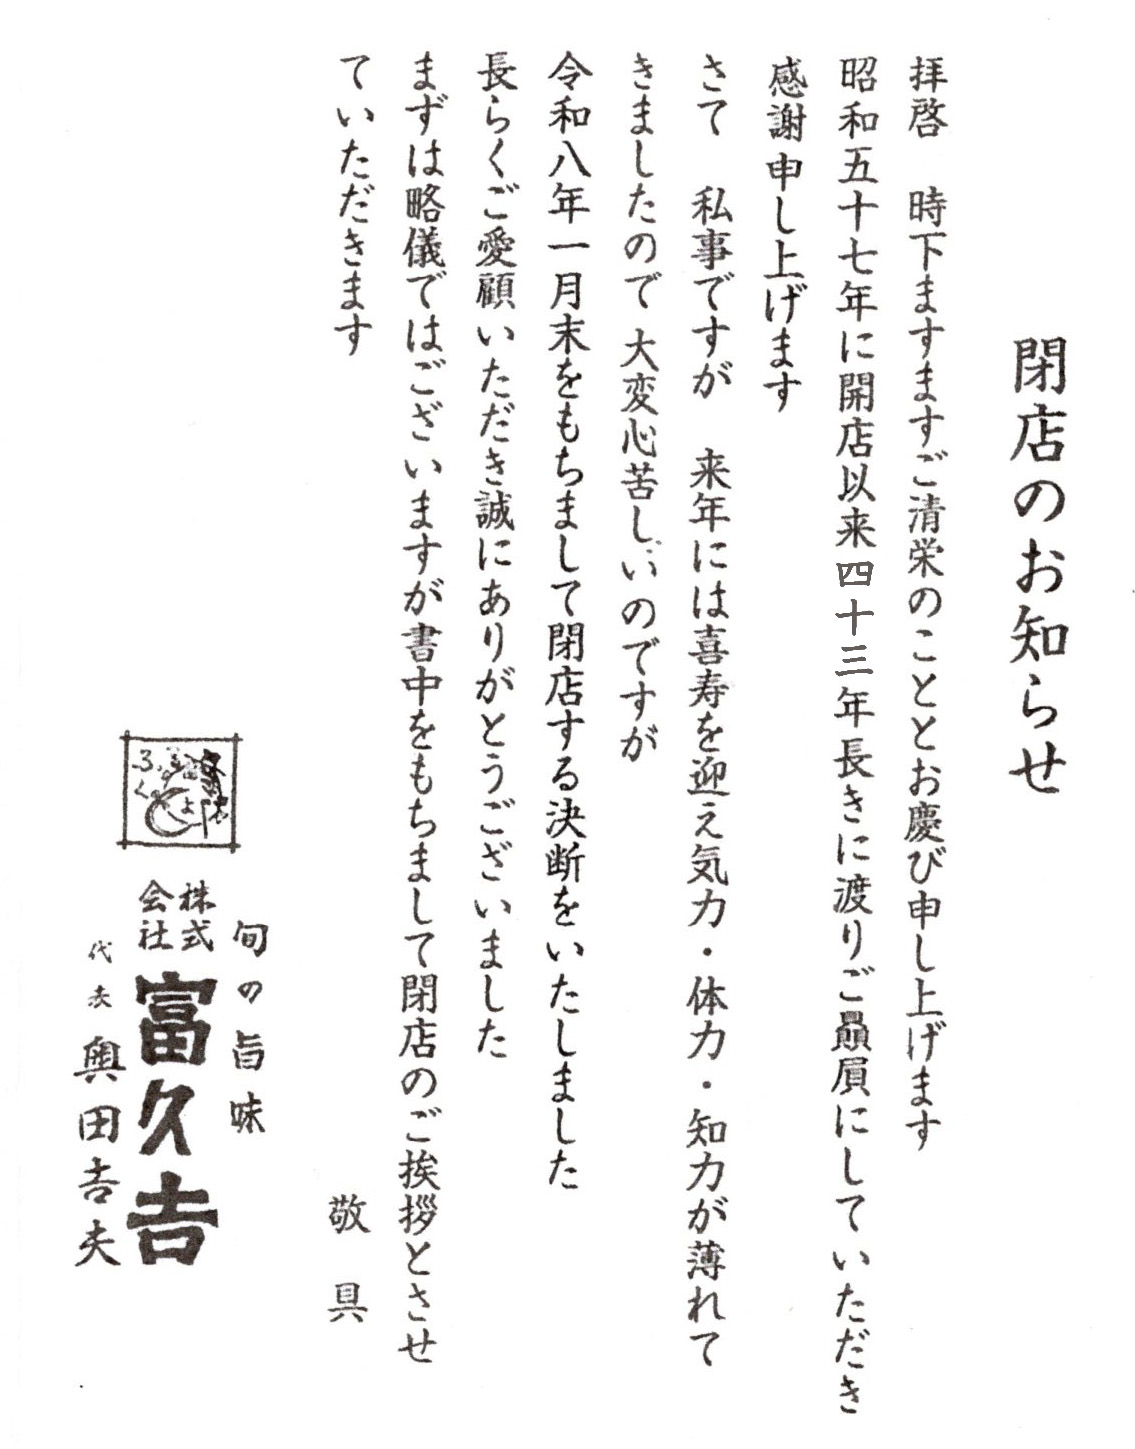 閉店のお知らせ
拝啓　時下ますますご清栄のこととお慶び申し上げます
昭和五十七年に開店以来四十三年長きに渡りご贔屓にしていただき
感謝申し上げます
さて　私事ですが　来年には喜寿を迎え気力・体力・知力が薄れて
きましたので大変心苦しいのですが
令和八年一月末をもちまして閉店する決断をいたしました
長らくご愛顧いただき誠にありがとうございました
まずは略儀ではございますが書中をもちまして閉店のご挨拶とさせ
ていただきます
敬具
旬の旨味
株式会社 富久𠮷
代表 奥田𠮷夫